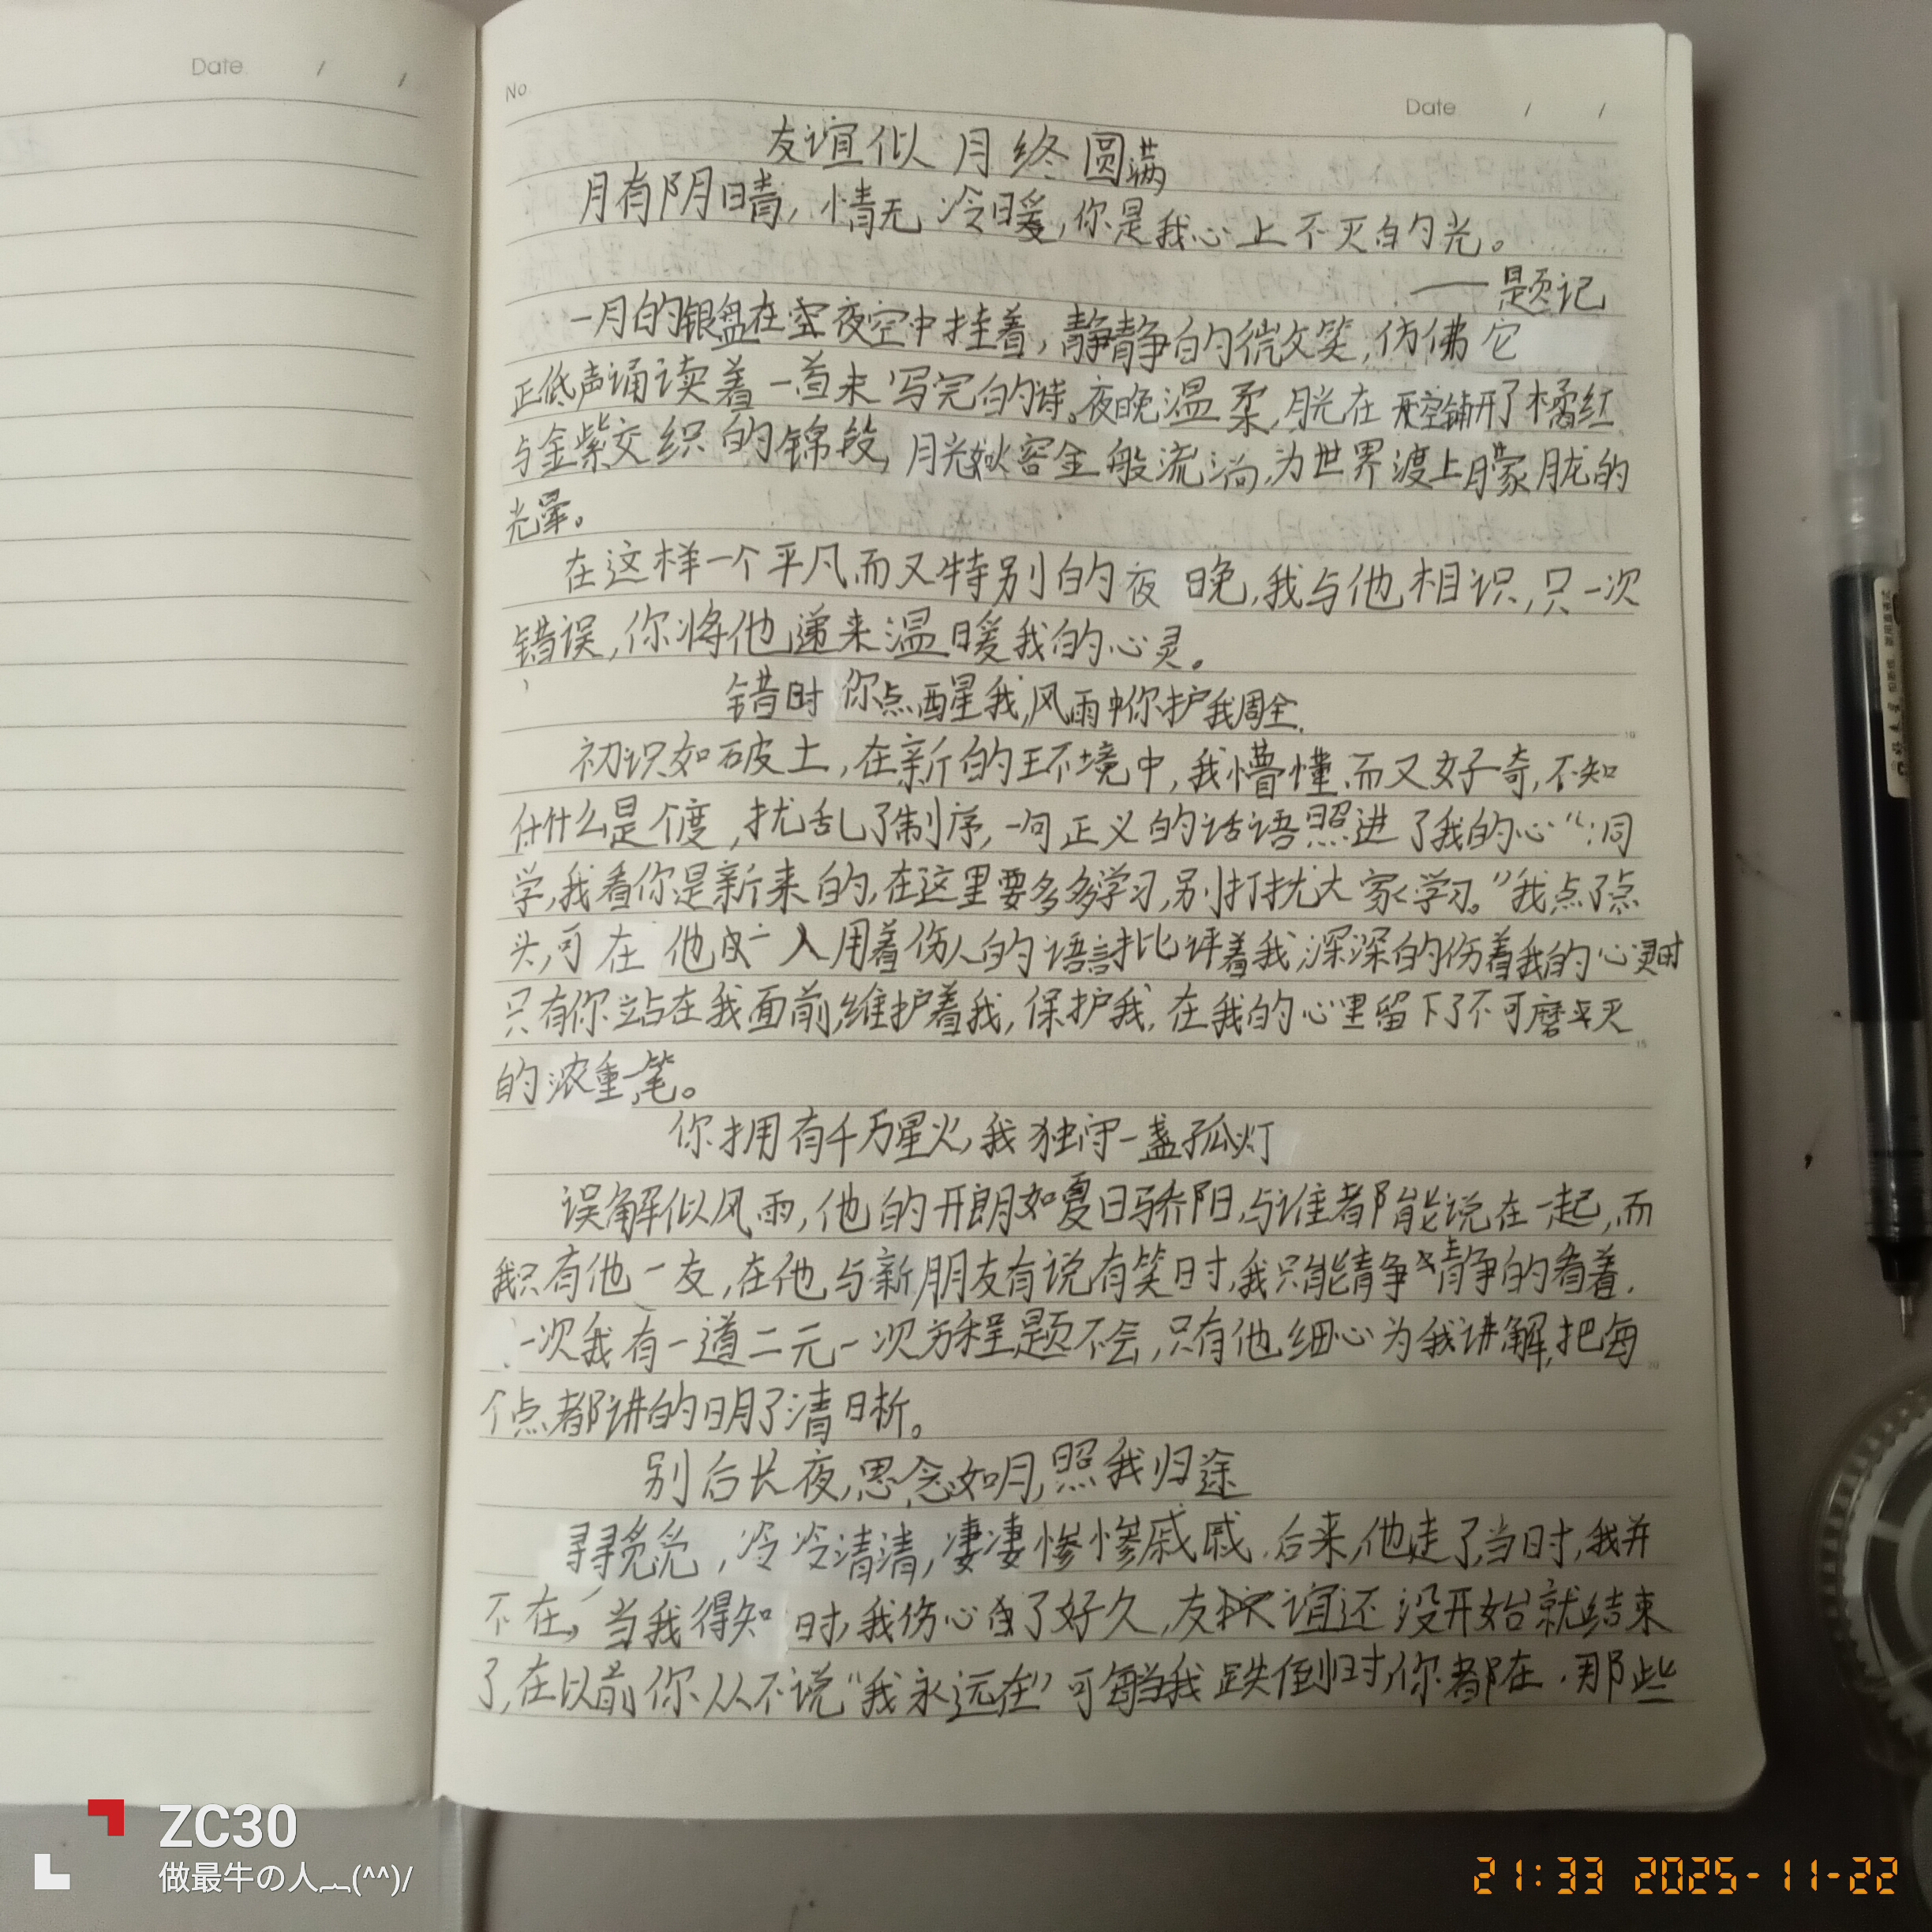 Date / /
No
Date / /
友谊似月终圆满
月有阴晴,情无冷暖,你是我心上不灭的光。
——题记
一月的银盘在空夜空中挂着,静静的微笑,仿佛它
正低声诵读着一首未写完的诗。夜晚温柔,月光在天空铺开了橘红
与金紫交织的锦段,月光如容金般流淌,为世界渡上朦胧的
光晕。
在这样一个平凡而又特别的夜晚,我与他相识,只一次
错误,你将他递来温暖我的心灵。
错时你点醒我,风雨中你护我周全.
初识如破土,在新的环境中,我懵懂而又好奇,不知
什么是个度,扰乱了制序,一句正义的话语照进了我的心“:同
学,我看你是新来的,在这里要多多学习,别打扰大家学习。”我点了点
头,可在他 人用着伤人的语言批评着我,深深的伤着我的心灵时
只有你站在我面前,维护着我,保护我.在我的心里留下了不可磨灭
的浓重一笔。
你拥有千万星火,我独守一盏孤灯
误解似风雨,他的开朗如夏日骄阳,与谁都能说在一起,而
我只有他一友,在他与新朋友有说有笑时,我只能静静的看着.
一次我有一道二元一次方程题不会,只有他细心为我讲解,把每
个点都讲的明了清晰。
别后长夜,思念如月,照我归途
寻寻觅觅,冷冷清清,凄凄惨惨戚戚.后来,他走了,当时,我并
不在,当我得知时,我伤心了好久,友谊还没开始就结束
了,在以前你从不说“我永远在”可每当我跌倒时,你都在.那些
ZC30
做最牛の人︹(^^)/
21:33 2025-11-22